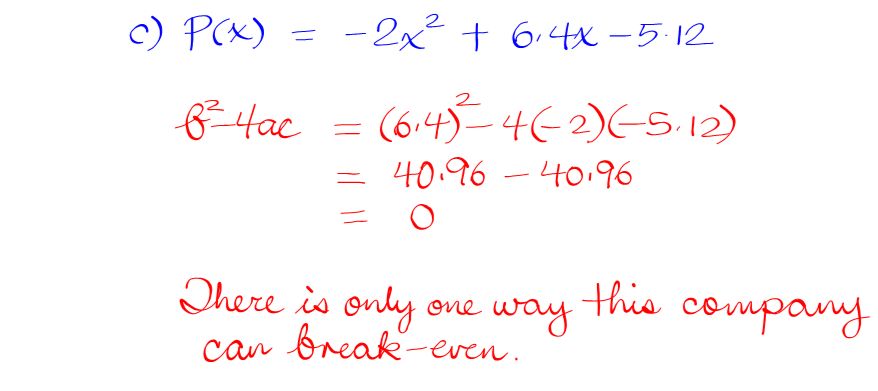 c) P(x) = -2x² + 6.4x - 5.12
b²-4ac = (6.4)² - 4(-2)(-5.12)
= 40.96 - 40.96
= 0
There is only one way this company
can break-even.